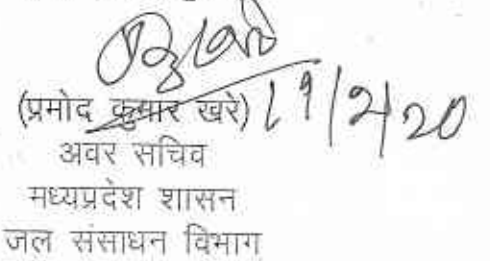 (प्रमोद कुमार खरे) 19/2/20
अवर सचिव
मध्यप्रदेश शासन
जल संसाधन विभाग